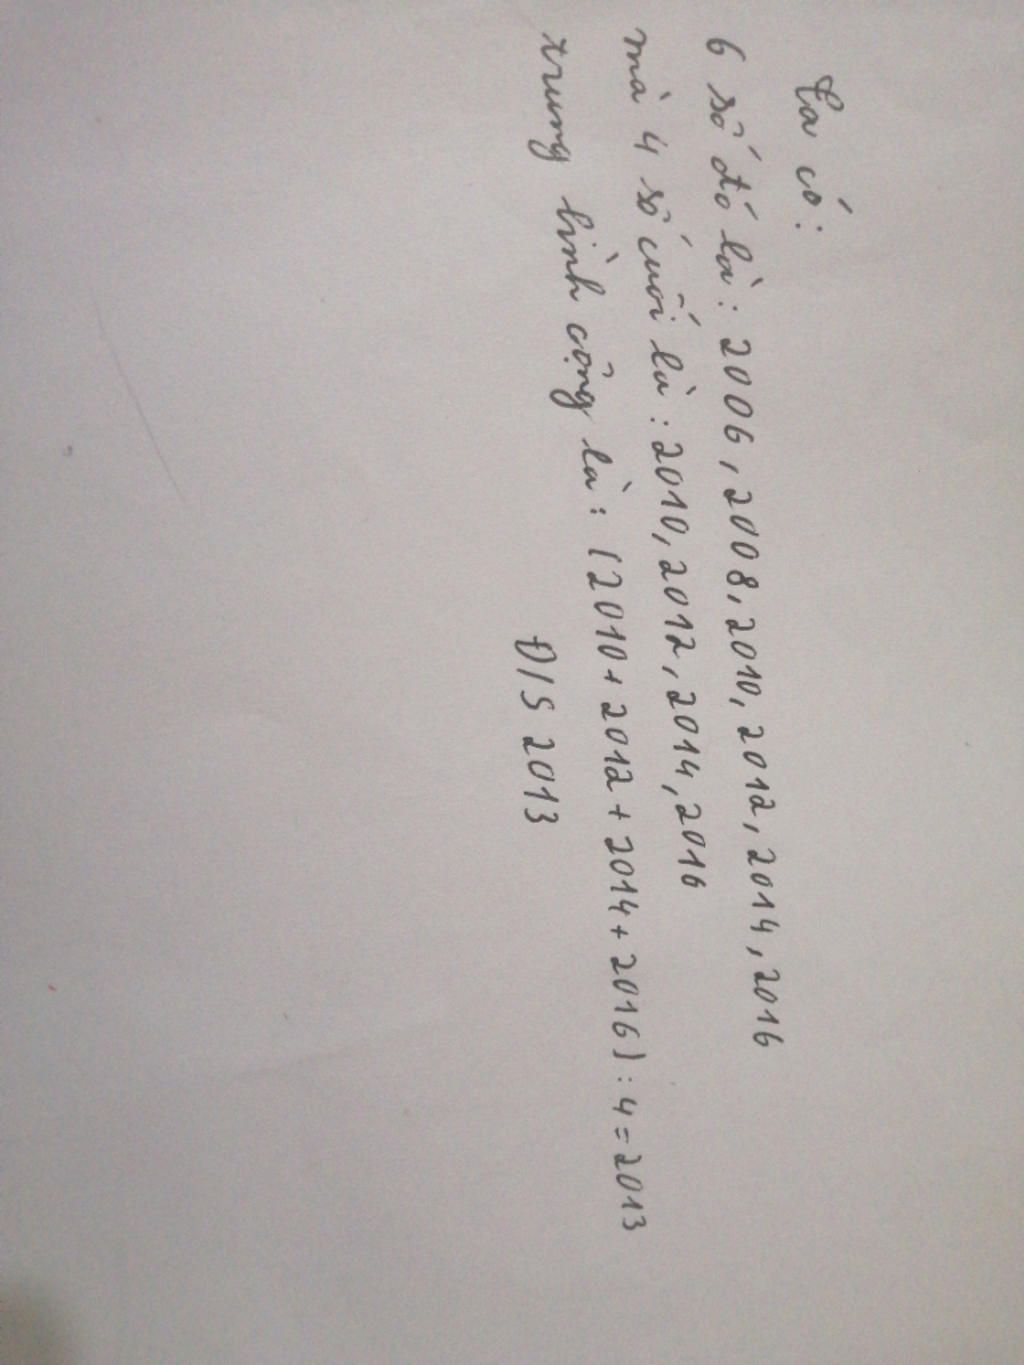 Ta có:
6 số đó là: 2006, 2008, 2010, 2012, 2014, 2016
mà 4 số cuối là: 2010, 2012, 2014, 2016
trung bình cộng là: (2010+2012+2014+2016):4=2013
Đ/S 2013